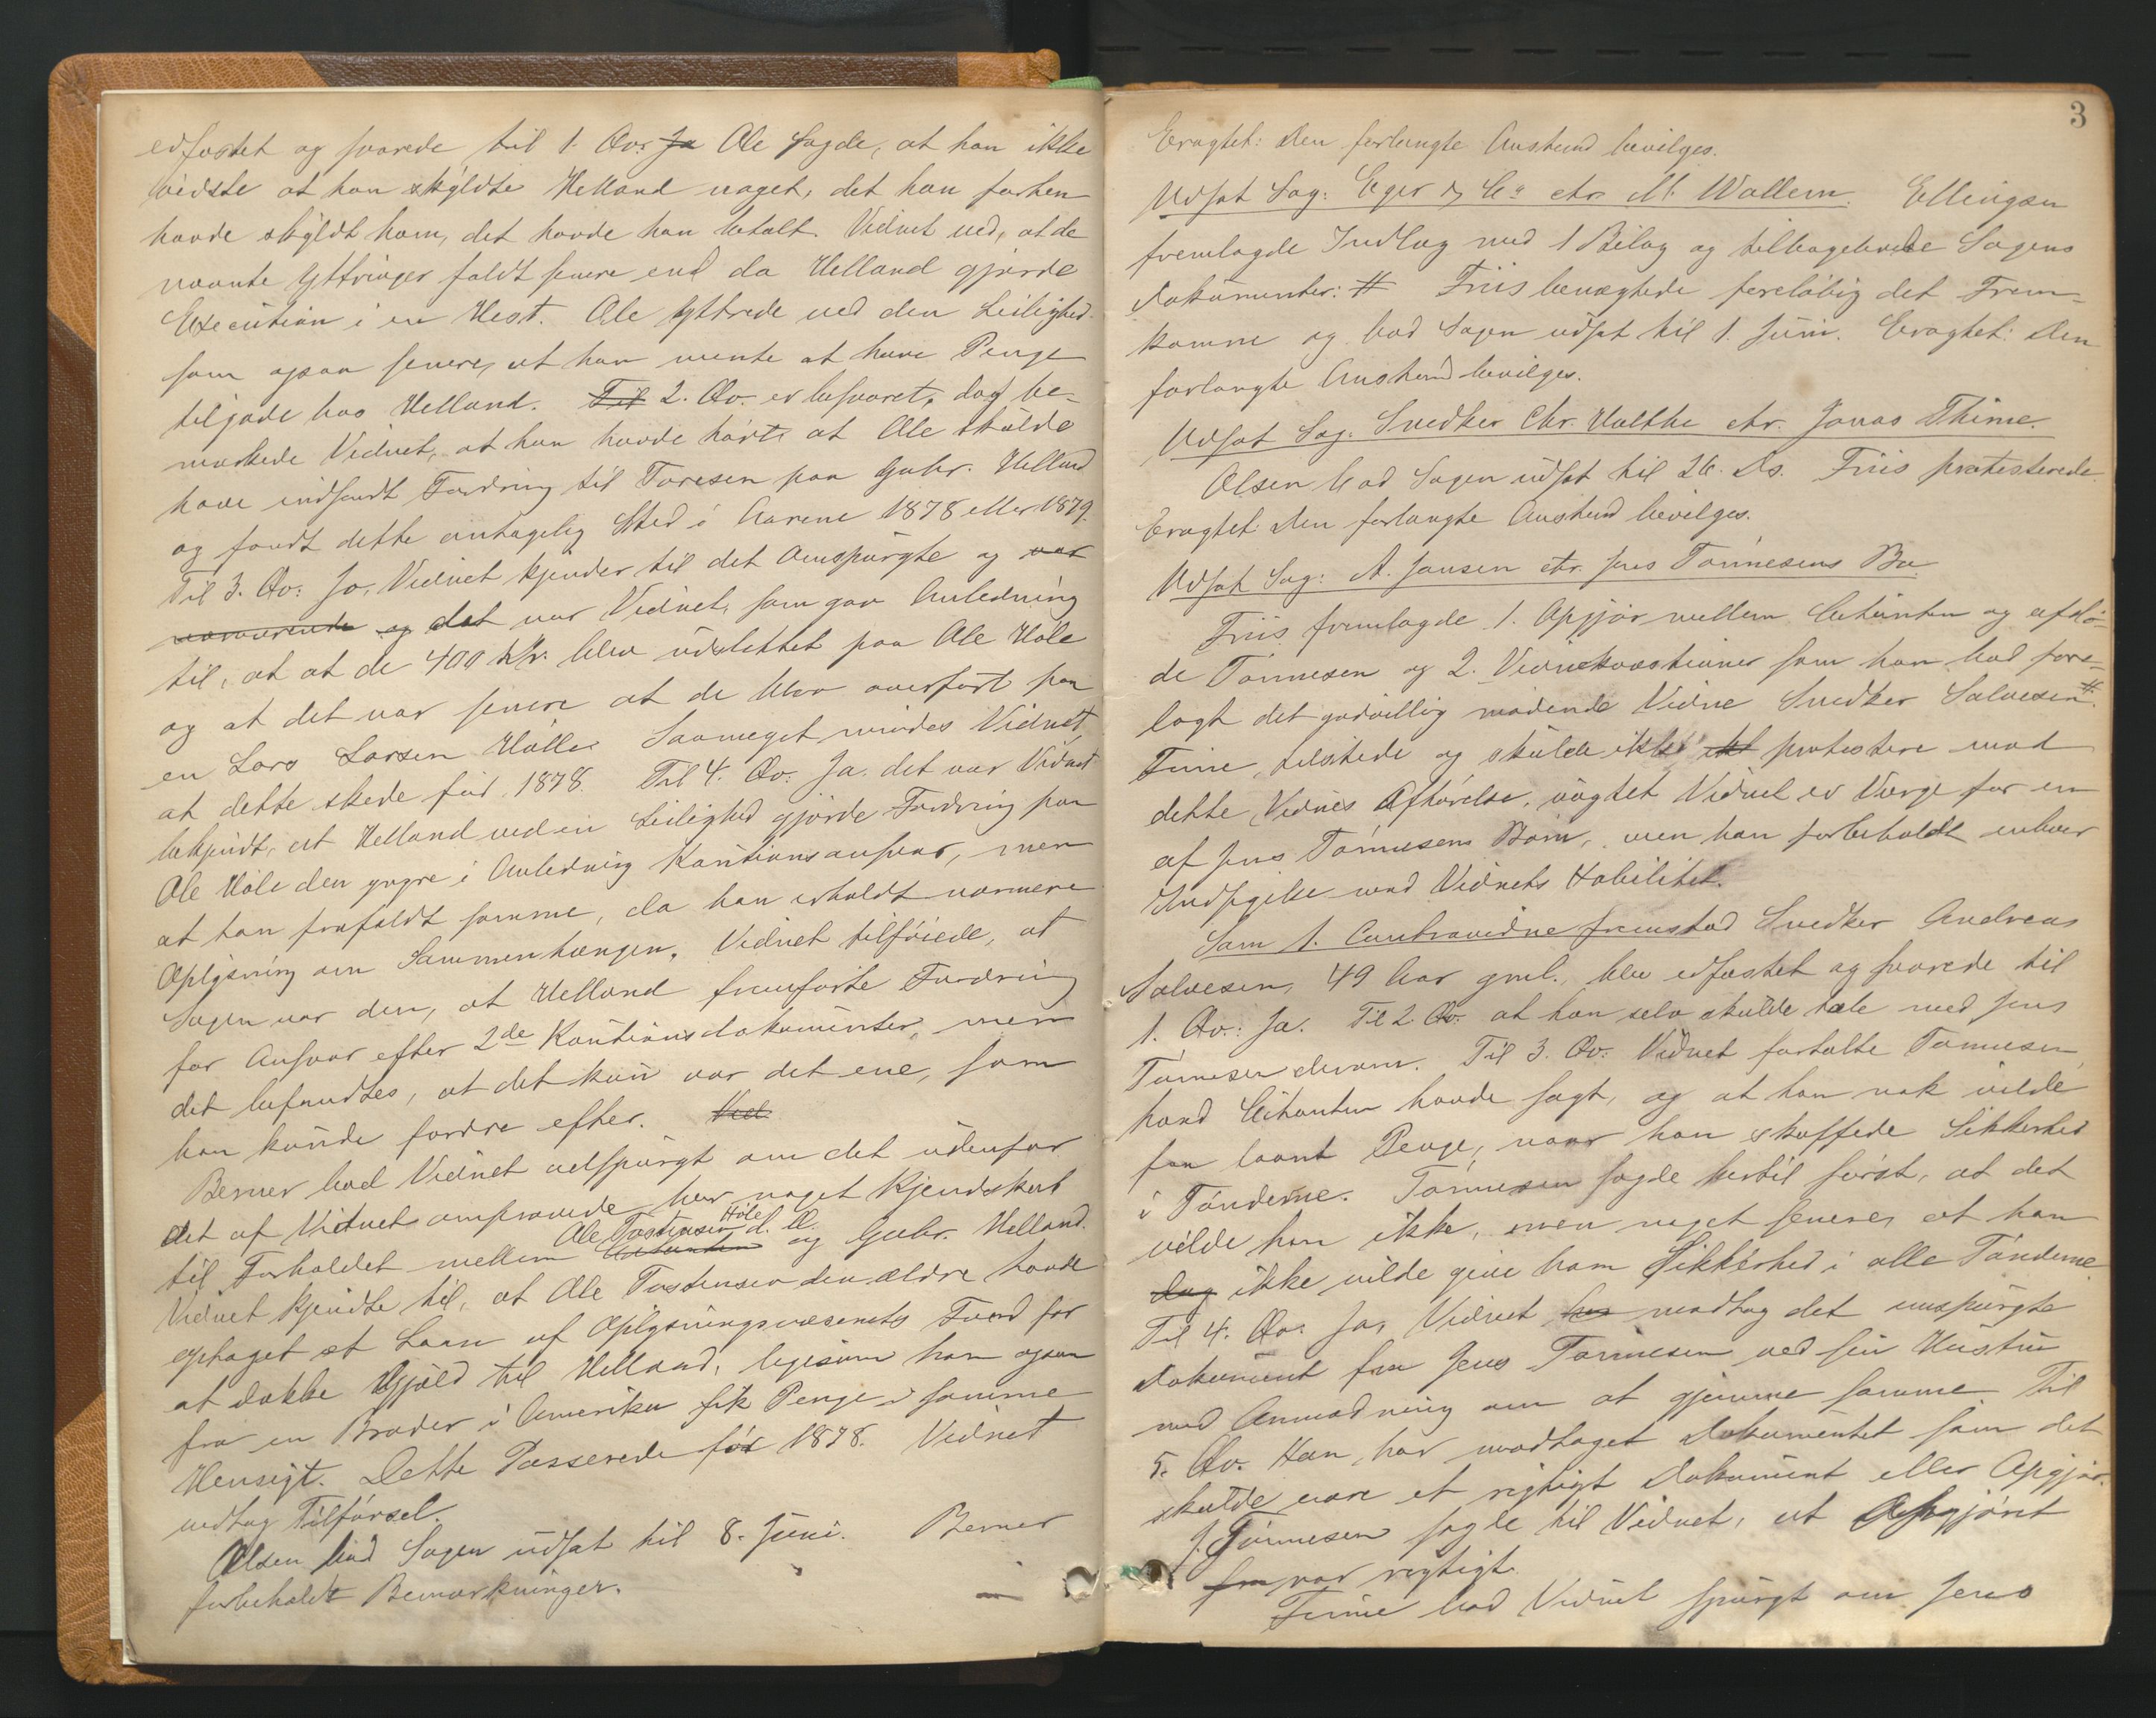 edfæstet og svarede til 1. Qv. Ja Ole sagde, at han ikke
vidste at han skyldte Helland noget, det han forhen
havde skyldt ham, det havde han betalt. Vidnet ved, at de
nævnte Yttringer faldt senere end da Helland gjorde
Execution i en Hest. Ole yttrede ved den Leilighed
som ogsaa senere, at han mente at have Penge
tilgode hos Helland. Til 2. Qv. er besvaret, dog be-
mærkede Vidnet, at han havde hørt, at Ole skulde
have indsendt Fordring til Toresen paa Gabr. Helland
og fandt dette antagelig Sted i Aarene 1878 eller 1879.
Til 3. Qv: Ja, Vidnet kjender til det Omspurgte og var
nærværende og det var Vidnet, som gav Anledning
til, at at de 400 Kr. blev udslettet paa Ole Høle
og at det var senere at de blev overført paa
en Lars Larsen Hølle. Saameget mindes Vidnet,
at dette skede før 1878. Til 4. Qv: Ja. det var Vidnet
bekjendt, at Helland ved en Leilighed gjorde Fordring paa
Ole Høle den yngre i Anledning Kautionsansvar, men
at han frafaldt samme, da han erholdt nærmere
Oplysning om Sammenhængen. Vidnet tilføiede, at
Sagen var den, at Helland fremførte Fordring
for Ansvar efter 2de Kautionsdokumenter, men
det befandtes, at det kun var det ene, som
han kunde fordre efter. Ved
Berner bad Vidnet udspurgt om det udenfor
det af Vidnet omprovede har noget Kjendskab
til Forholdet mellem Ole Tostensen Høle d. Æ. Citanten og Gabr. Helland.
Vidnet kjendte til, at Ole Tostensen den ældre havde
optaget et Laan af Oplysningsvæsenets Fond for
at dække Gjæld til Helland, ligesom han ogsaa
fra en Broder i Amerika fik Penge i samme
Hensigt. Dette Passerede før 1878. Vidnet
vedtog Tilførsel.
Olsen bad Sagen udsat til 8. Juni. Berner
forbeholdt Bemærkninger.
3
Eragtet: Den forlangte Anstand bevilges.
Udsat Sag: Eger & Co ctr. M. Wallem. Ellingsen
fremlagde Indlæg med 1 Bilag og tilbageleverede Sagens
Dokumenter: # Friis benægtede foreløbig det Frem-
komne og bad Sagen udsat til 1. Juni. Eragtet: Den
forlangte Anstand bevilges.
Udsat Sag: Snedker Chr. Valthe ctr. Jonas Thime.
Olsen bad Sagen udsat til 26. Ds. Friis protesterede.
Eragtet: Den forlangte Anstand bevilges.
Udsat Sag: A. Jansen ctr. Jens Tønnesens Bo
Friis fremlagde 1. Opgjør mellem Citanten og afdø-
de Tønnesen og 2. Vidnekvæstioner som han bad fore-
lagt det godvillig mødende Vidne Snedker Salvesen #.
Time tilstede og skulde ikke protestere mod
dette Vidnes Afhørelse, uagtet Vidnet er Værge for en
af Jens Tønnesens Børn, men han forbeholdt enhver
Indsigelse mod Vidnets Habilitet.
Som 1. Contravidne fremstod Snedker Andreas
Salvesen, 49 Aar gml., blev edfæstet og svarede til
1. Qv.: Ja. Til 2. Qv. at han selv skulde tale med Jens
Tønnesen derom. Til 3. Qv: Vidnet fortalte Tønnesen,
hvad Citanten havde sagt, og at han nok vilde
faa laant Penge, naar han skaffede Sikkerhed
i Tønderne. Tønnesen sagde hertil først, at det
vilde han ikke, men noget senere, at han
dog ikke vilde give ham Sikkerhed i alle Tønderne.
Til 4. Qv: Ja, Vidnet har modtog det omspurgte
Dokument fra Jens Tønnesen ved sin Hustru
med Anmodning om at gjemme samme. Til
5. Qv. Han har modtaget Dokumentet som det
skulde være et rigtigt Dokument eller Opgjør.
J. Tønnesen sagde til Vidnet, at Opgjøret
var rigtigt.
Time bad Vidnet spurgt om Jens